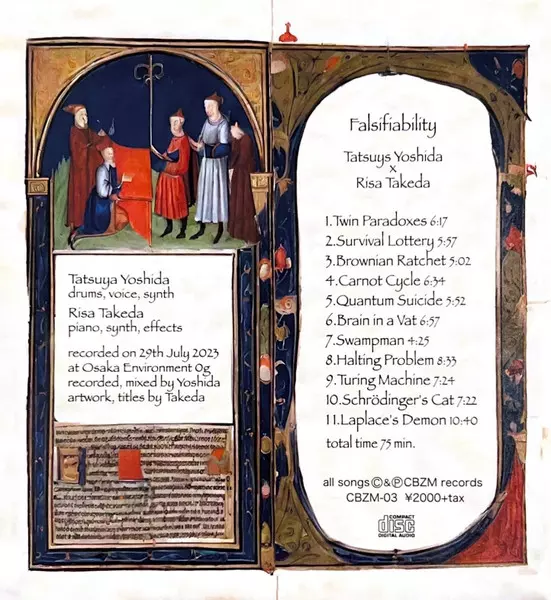 Tatsuya Yoshida
drums, voice, synth
Risa Takeda
piano, synth, effects
recorded on 29th July 2023
at Osaka Environment 0g
recorded, mixed by Yoshida
artwork, titles by Takeda
Falsifiability
Tatsuys Yoshida
x
Risa Takeda
1.Twin Paradoxes 6:17
2.Survival Lottery 5:57
3.Brownian Ratchet 5:02
4.Carnot Cycle 6:34
5.Quantum Suicide 5:52
6.Brain in a Vat 6:57
7.Swampman 4:25
8.Halting Problem 8:33
9.Turing Machine 7:24
10.Schrödinger's Cat 7:22
11.Laplace's Demon 10:40
total time 75 min.
all songs©&℗CBZM records
CBZM-03 ¥2000+tax
COMPACT
disc
DIGITAL AUDIO